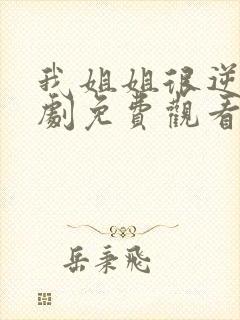 我姐姐很逆
劇免費觀看
岳秉飛